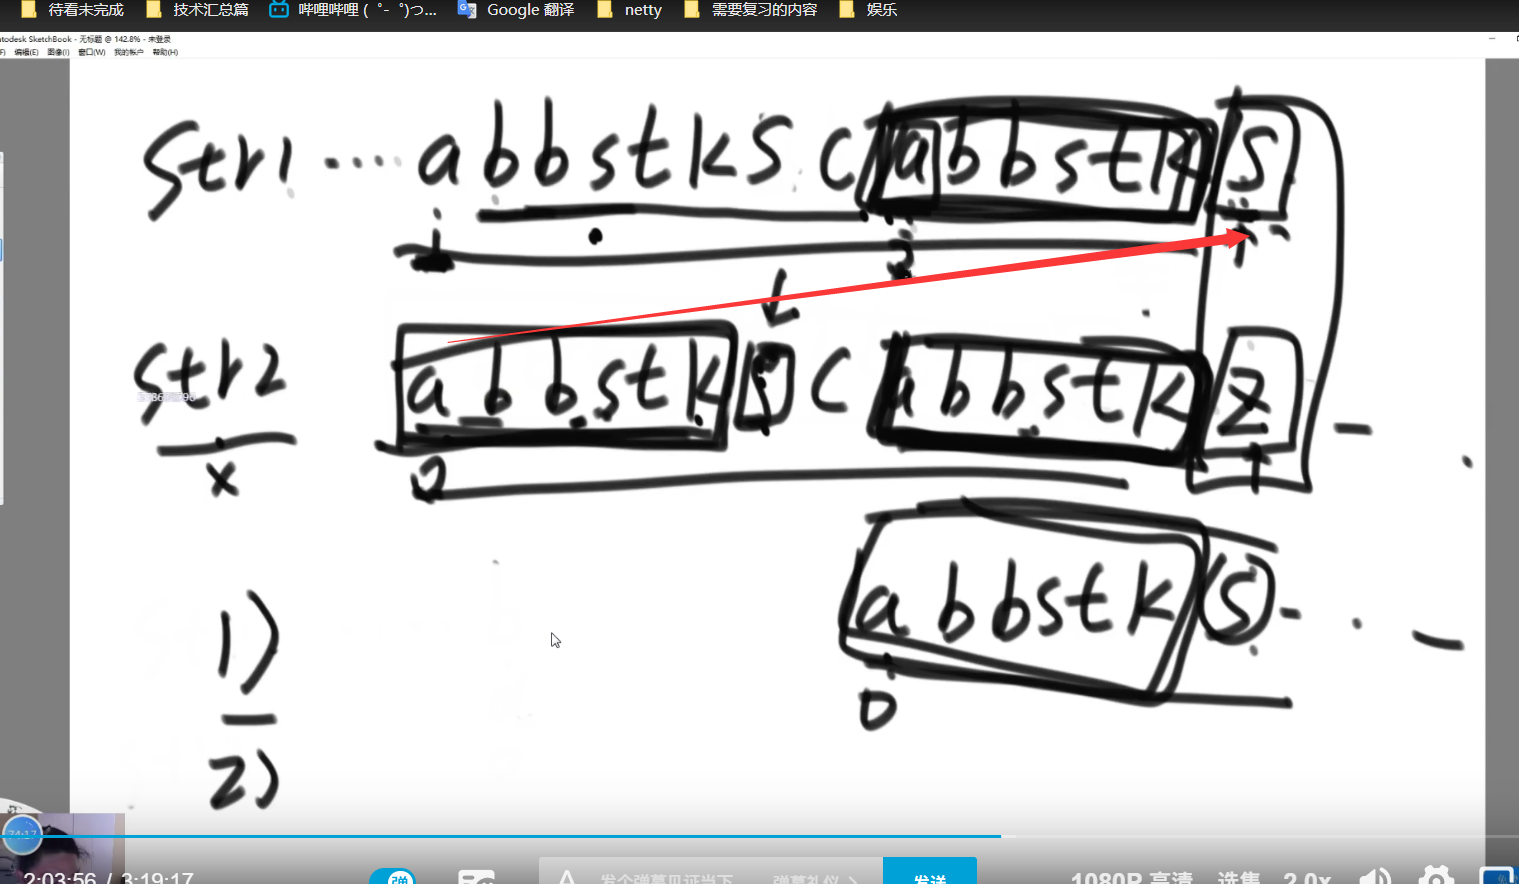 待看未完成 技术汇总篇 哔哩哔哩 (゜-゜)つ... Google 翻译 netty 需要复习的内容 娱乐
utodesk SketchBook - 无标题 @ 142.8% - 未登录
F) 编辑(E) 图像(I) 窗口(W) 我的帐户 帮助(H)
str1 .... a b b s t k s c a b b s t k s
i
str2 a b b s t k s c a b b s t k z
x
0
a b b s t k s
0
1)
2)
74:17
2:03:56 / 3:19:17 弹 发个弹幕见证当下 弹幕礼仪 > 发送 1080P 高清 选集 2.0x